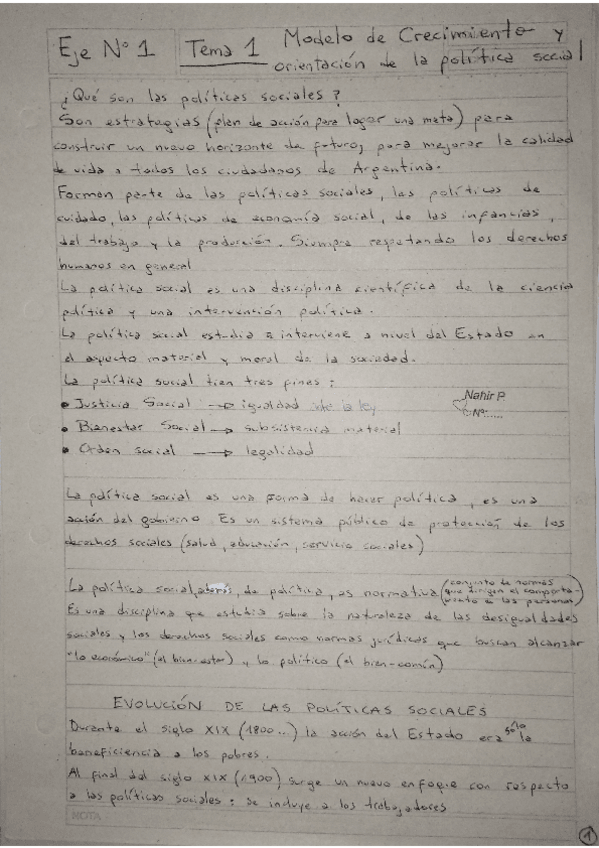 Eje Nº 1 Tema 1 Modelo de Crecimiento y
orientación de la política social
¿Qué son las políticas sociales?
Son estrategias (plan de acción para logar una meta) para
construir un nuevo horizonte de futuro, para mejorar la calidad
de vida a todos los ciudadanos de Argentina.
Forman parte de las políticas sociales, las políticas de
cuidado, las políticas de economía social, de las infancias,
del trabajo y la producción. Siempre respetando los derechos
humanos en general
La política social es una disciplina científica de la ciencia
política y una intervención política.
La política social estudia e interviene a nivel del Estado en
el aspecto material y moral de la sociedad.
La política social tien tres fines:
• Justicia Social → igualdad ante la ley
Nahir P.
• Bienestar Social → subsistencia material
Nº:......
• Orden social → legalidad
La política social es una forma de hacer política, es una
acción del gobierno. Es un sistema público de protección de los
derechos sociales (salud, educación, servicio sociales)
La política social, además, de política, es normativa (conjunto de normas
que dirigen el comporta-
miento a las personas)
Es una disciplina que estudia sobre la naturaleza de las desigualdades
sociales y los derechos sociales como normas jurídicas que buscan alcanzar
"lo económico" (el bienestar) y lo político (el bien-común)
EVOLUCIÓN DE LAS POLÍTICAS SOCIALES
Durante el siglo XIX (1800...) la acción del Estado era sólo la
beneficiencia a los pobres.
Al final del siglo XIX (1900) surge un nuevo enfoque con respecto
a las políticas sociales: se incluye a los trabajadores
NOTA
1